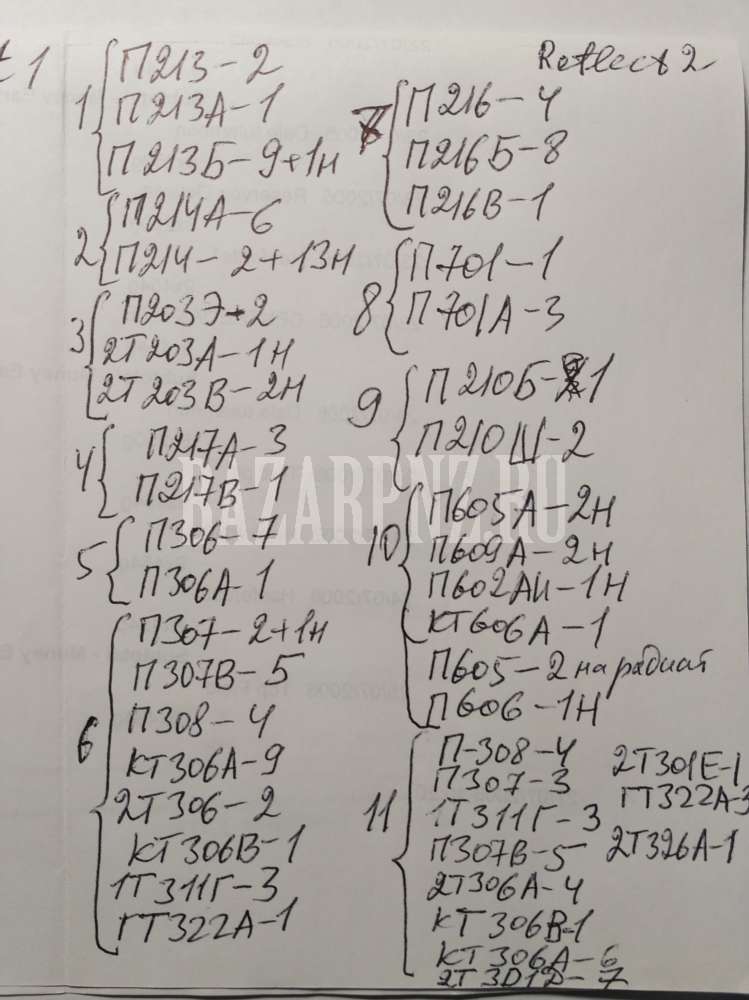 t 1
1 П213-2
П213А-1
П213Б-9+1н
2 П214А-6
П214-2+13н
3 П203Э-2
2Т203А-1Н
2Т203В-2Н
4 П217А-3
П217В-1
5 П306-7
П306А-1
6 П307-2+1н
П307В-5
П308-4
КТ306А-9
2Т306-2
КТ306В-1
1Т311Г-3
ГТ322А-1
Reflect 2
7 П216-4
П216Б-8
П216В-1
8 П701-1
П701А-3
9 П210Б-1
П210Ш-2
10 П605А-2Н
П609А-2Н
П602АИ-1Н
КТ606А-1
П605-2 на радиат
П606-1Н
11 П-308-4
П307-3
1Т311Г-3
П307В-5
2Т306А-4
КТ306В-1
КТ306А-6
2Т301Д-7
2Т301Е-1
ГТ322А-3
2Т326А-1
BAZARPNZ.RU